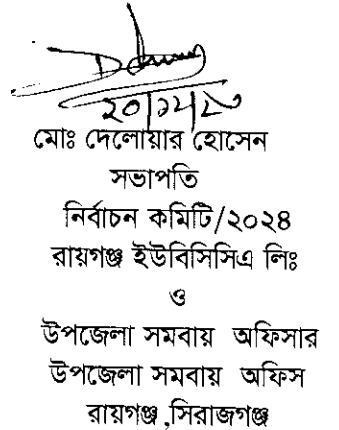 ২০/১২/২৩
মোঃ দেলোয়ার হোসেন
সভাপতি
নির্বাচন কমিটি/২০২৪
রায়গঞ্জ ইউবিসিসিএ লিঃ
ও
উপজেলা সমবায় অফিসার
উপজেলা সমবায় অফিস
রায়গঞ্জ ,সিরাজগঞ্জ